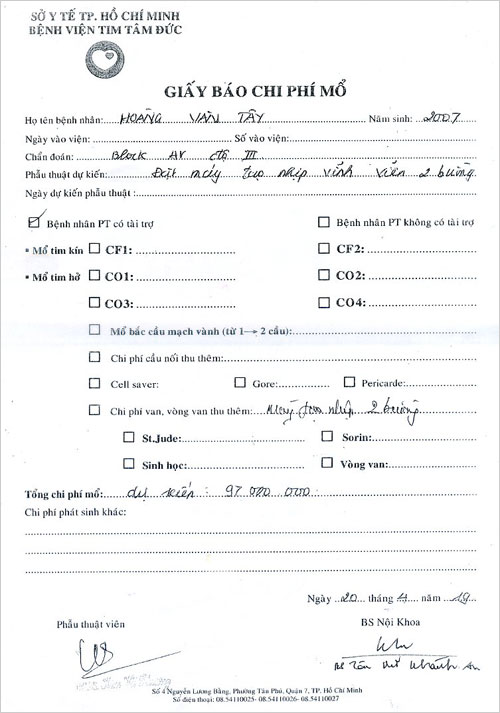 SỞ Y TẾ TP. HỒ CHÍ MINH
BỆNH VIỆN TIM TÂM ĐỨC
GIẤY BÁO CHI PHÍ MỔ
Họ tên bệnh nhân: HOÀNG VĂN TÂY Năm sinh: 2007
Ngày vào viện: Số vào viện:
Chẩn đoán: Block AV độ III
Phẫu thuật dự kiến: Đặt máy tạo nhịp vĩnh viễn 2 buồng
Ngày dự kiến phẫu thuật :
Bệnh nhân PT có tài trợ Bệnh nhân PT không có tài trợ
▪ Mổ tim kín CF1: CF2:
▪ Mổ tim hở CO1: CO2:
CO3: CO4:
Mổ bắc cầu mạch vành (từ 1→ 2 cầu):
Chi phí cầu nối thu thêm:
Cell saver: Gore: Pericarde:
Chi phí van, vòng van thu thêm: Máy tạo nhịp 2 buồng
St.Jude: Sorin:
Sinh học: Vòng van:
Tổng chi phí mổ: dự kiến : 97 000 000
Chi phí phát sinh khác:
Ngày 20 tháng 4 năm 19
Phẫu thuật viên BS Nội Khoa
BS Khánh An
Số 4 Nguyễn Lương Bằng, Phường Tân Phú, Quận 7, TP. Hồ Chí Minh
Số điện thoại: 08.54110025- 08.54110026- 08.54110027